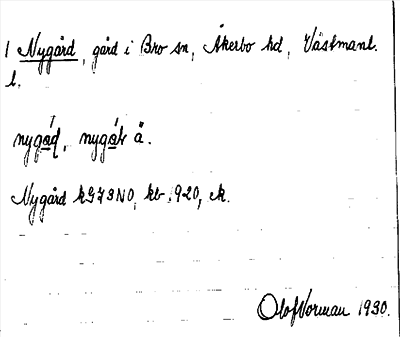 1 Nygård, gård i Bro sn, Åkerbo hd, Västmanl.
l.
nygåd, nygår å.
Nygård kG73NO, kb 1920, ek.
Olof Norman 1930.